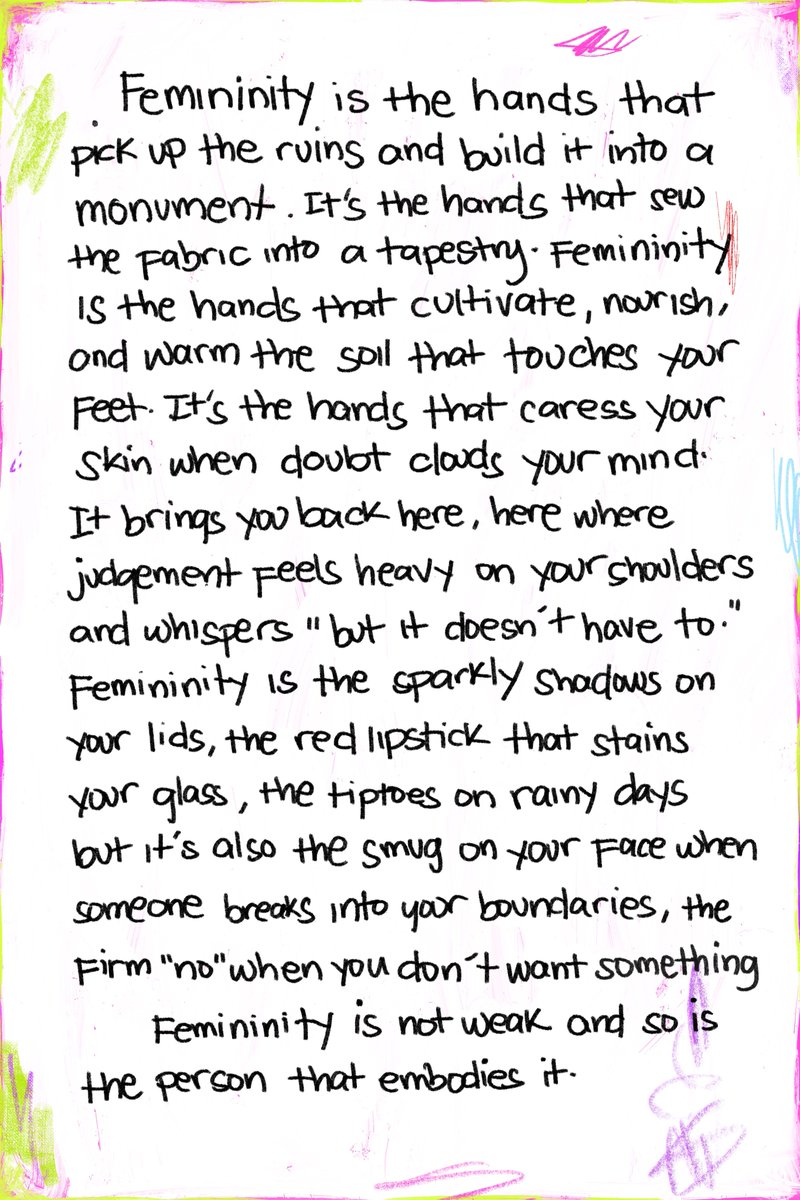 Femininity is the hands that
pick up the ruins and build it into a
monument. It's the hands that sew
the fabric into a tapestry. Femininity
is the hands that cultivate, nourish,
and warm the soil that touches your
feet. It's the hands that caress your
skin when doubt clouds your mind.
It brings you back here, here where
judgement feels heavy on your shoulders
and whispers "but it doesn't have to."
Femininity is the sparkly shadows on
your lids, the red lipstick that stains
your glass, the tiptoes on rainy days
but it's also the smug on your face when
someone breaks into your boundaries, the
firm "no" when you don't want something
Femininity is not weak and so is
the person that embodies it.